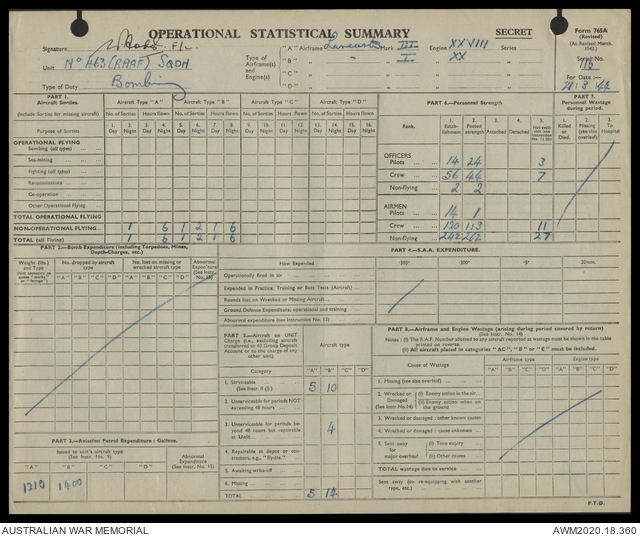 OPERATIONAL STATISTICAL SUMMARY
SECRET
Form 765A
(Revised)
(As Revised March, 1943).
Serial No.
118
For Day :—
28/3/44
Signature F/L.
Unit No 463 (RAAF) Sqdn
Type of Duty Bombing
Type of Airframe(s) and Engine(s)
"A" Airframe Lancaster Mark III Engine XXVIII Series
"B" " - " I " XX "
"C"
"D"
PART 1.
Aircraft Sorties.
(Include Sorties for missing aircraft)
Aircraft Type "A" Aircraft Type "B" Aircraft Type "C" Aircraft Type "D"
No. of Sorties Hours flown No. of Sorties Hours flown No. of Sorties Hours flown No. of Sorties Hours flown
Purpose of Sorties
1. Day 2. Night 3. Day 4. Night 5. Day 6. Night 7. Day 8. Night 9. Day 10. Night 11. Day 12. Night 13. Day 14. Night 15. Day 16. Night
OPERATIONAL FLYING
Bombing (all types)
Sea-mining
Fighting (all types)
Reconnaissance
Co-operation
Other Operational Flying
TOTAL OPERATIONAL FLYING
NON-OPERATIONAL FLYING 1 6 1 2 1 6
TOTAL (all Flying) 1 6 1 2 1 6
PART 6.—Personnel Strength
Rank. 1. Establishment 2. Posted strength 3. Attached 4. Detached
OFFICERS
Pilots 14 24 3
Crew 56 44 7
Non-flying 2 2
AIRMEN
Pilots 14 1
Crew 120 113 11
Non-flying 242 27
PART 7.
Personnel Wastage during period.
1. Killed or Died. 2. Missing (see also overleaf) 3. To Hospital
PART 2.—Bomb Expenditure (including Torpedoes, Mines, Depth-Charges, etc.)
Weight (lbs.) and Type
No. dropped by aircraft type
No. lost on missing or wrecked aircraft type
Abnormal Expen'ture (See Instr. No. 15)
"A" "B" "C" "D" "A" "B" "C" "D"
PART 4.—S.A.A. EXPENDITURE.
How Expended ·303" ·300" ·5" 20mm.
Operationally fired in air
Expended in Practice, Training or Butt Tests (Aircraft)
Rounds lost on Wrecked or Missing Aircraft
Ground Defence Expenditure, operational and training
Abnormal expenditure (see Instruction No. 15)
PART 5.—Aircraft on UNIT Charge (i.e., excluding aircraft transferred to 43 Group Deposit Account or to the charge of any other unit)
Aircraft type
Category "A" "B" "C" "D"
1. Serviceable (See Instr. 8 (i).) 5 10
2. Unserviceable for periods NOT exceeding 48 hours
3. Unserviceable for periods beyond 48 hours but repairable at Unit 4
4. Repairable at depot or contractors, e.g., "fly-ins."
5. Awaiting write-off
6. Missing
TOTAL 5 14
PART 8.—Airframe and Engine Wastage (arising during period covered by return)
(See Instr. No. 14)
Notes : (i) The R.A.F. Number allotted to any aircraft reported as wastage must be shown in the table printed on reverse.
(ii) All aircraft placed in categories "AC", "B" or "E" must be included.
Cause of Wastage Airframe type Engine type
"A" "B" "C" "D" "A" "B" "C" "D"
1. Missing (see also overleaf)
2. Wrecked or Damaged (See Instr. No. 14) (i) Enemy action in the air
(ii) Enemy action when on the ground
3. Wrecked or damaged : other known causes
4. Wrecked or damaged : cause unknown
5. Sent away for major overhaul (i) Time expiry
(ii) Other causes
TOTAL wastage due to service
Sent away (on re-equipping with another type, etc.)
PART 3.—Aviation Petrol Expenditure : Gallons.
Issued to unit's aircraft type (See Instr. No. 9)
Abnormal Expenditure (See Instr. No. 15)
"A" "B" "C" "D"
1210 1400
P.T.O.
AUSTRALIAN WAR MEMORIAL
AWM2020.18.360